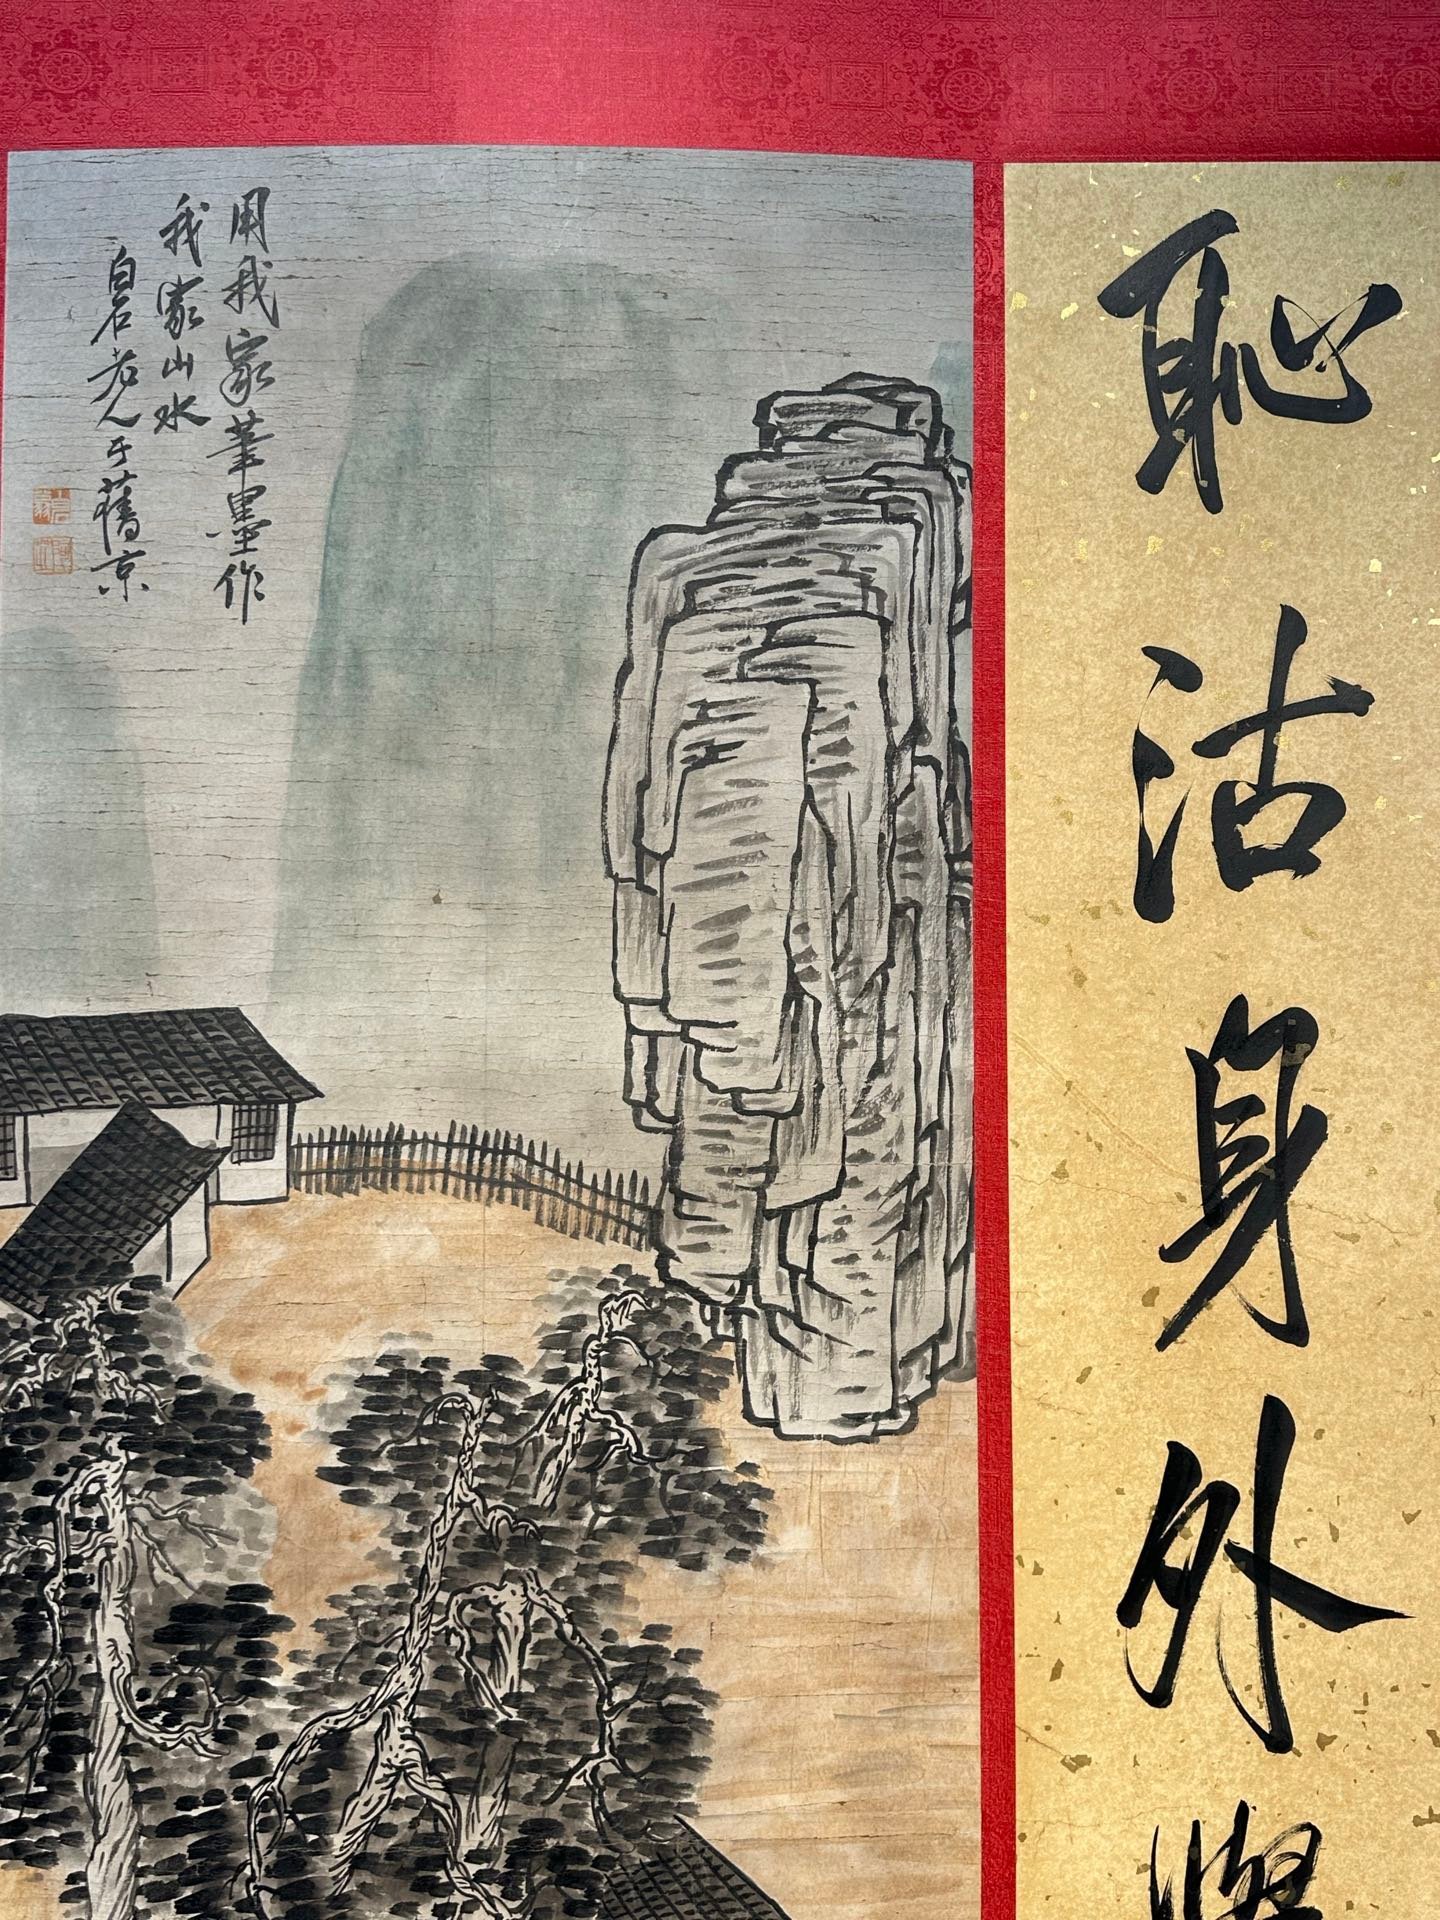 恥沾身外
用我家筆墨作
我家山水
白石老人于舊京